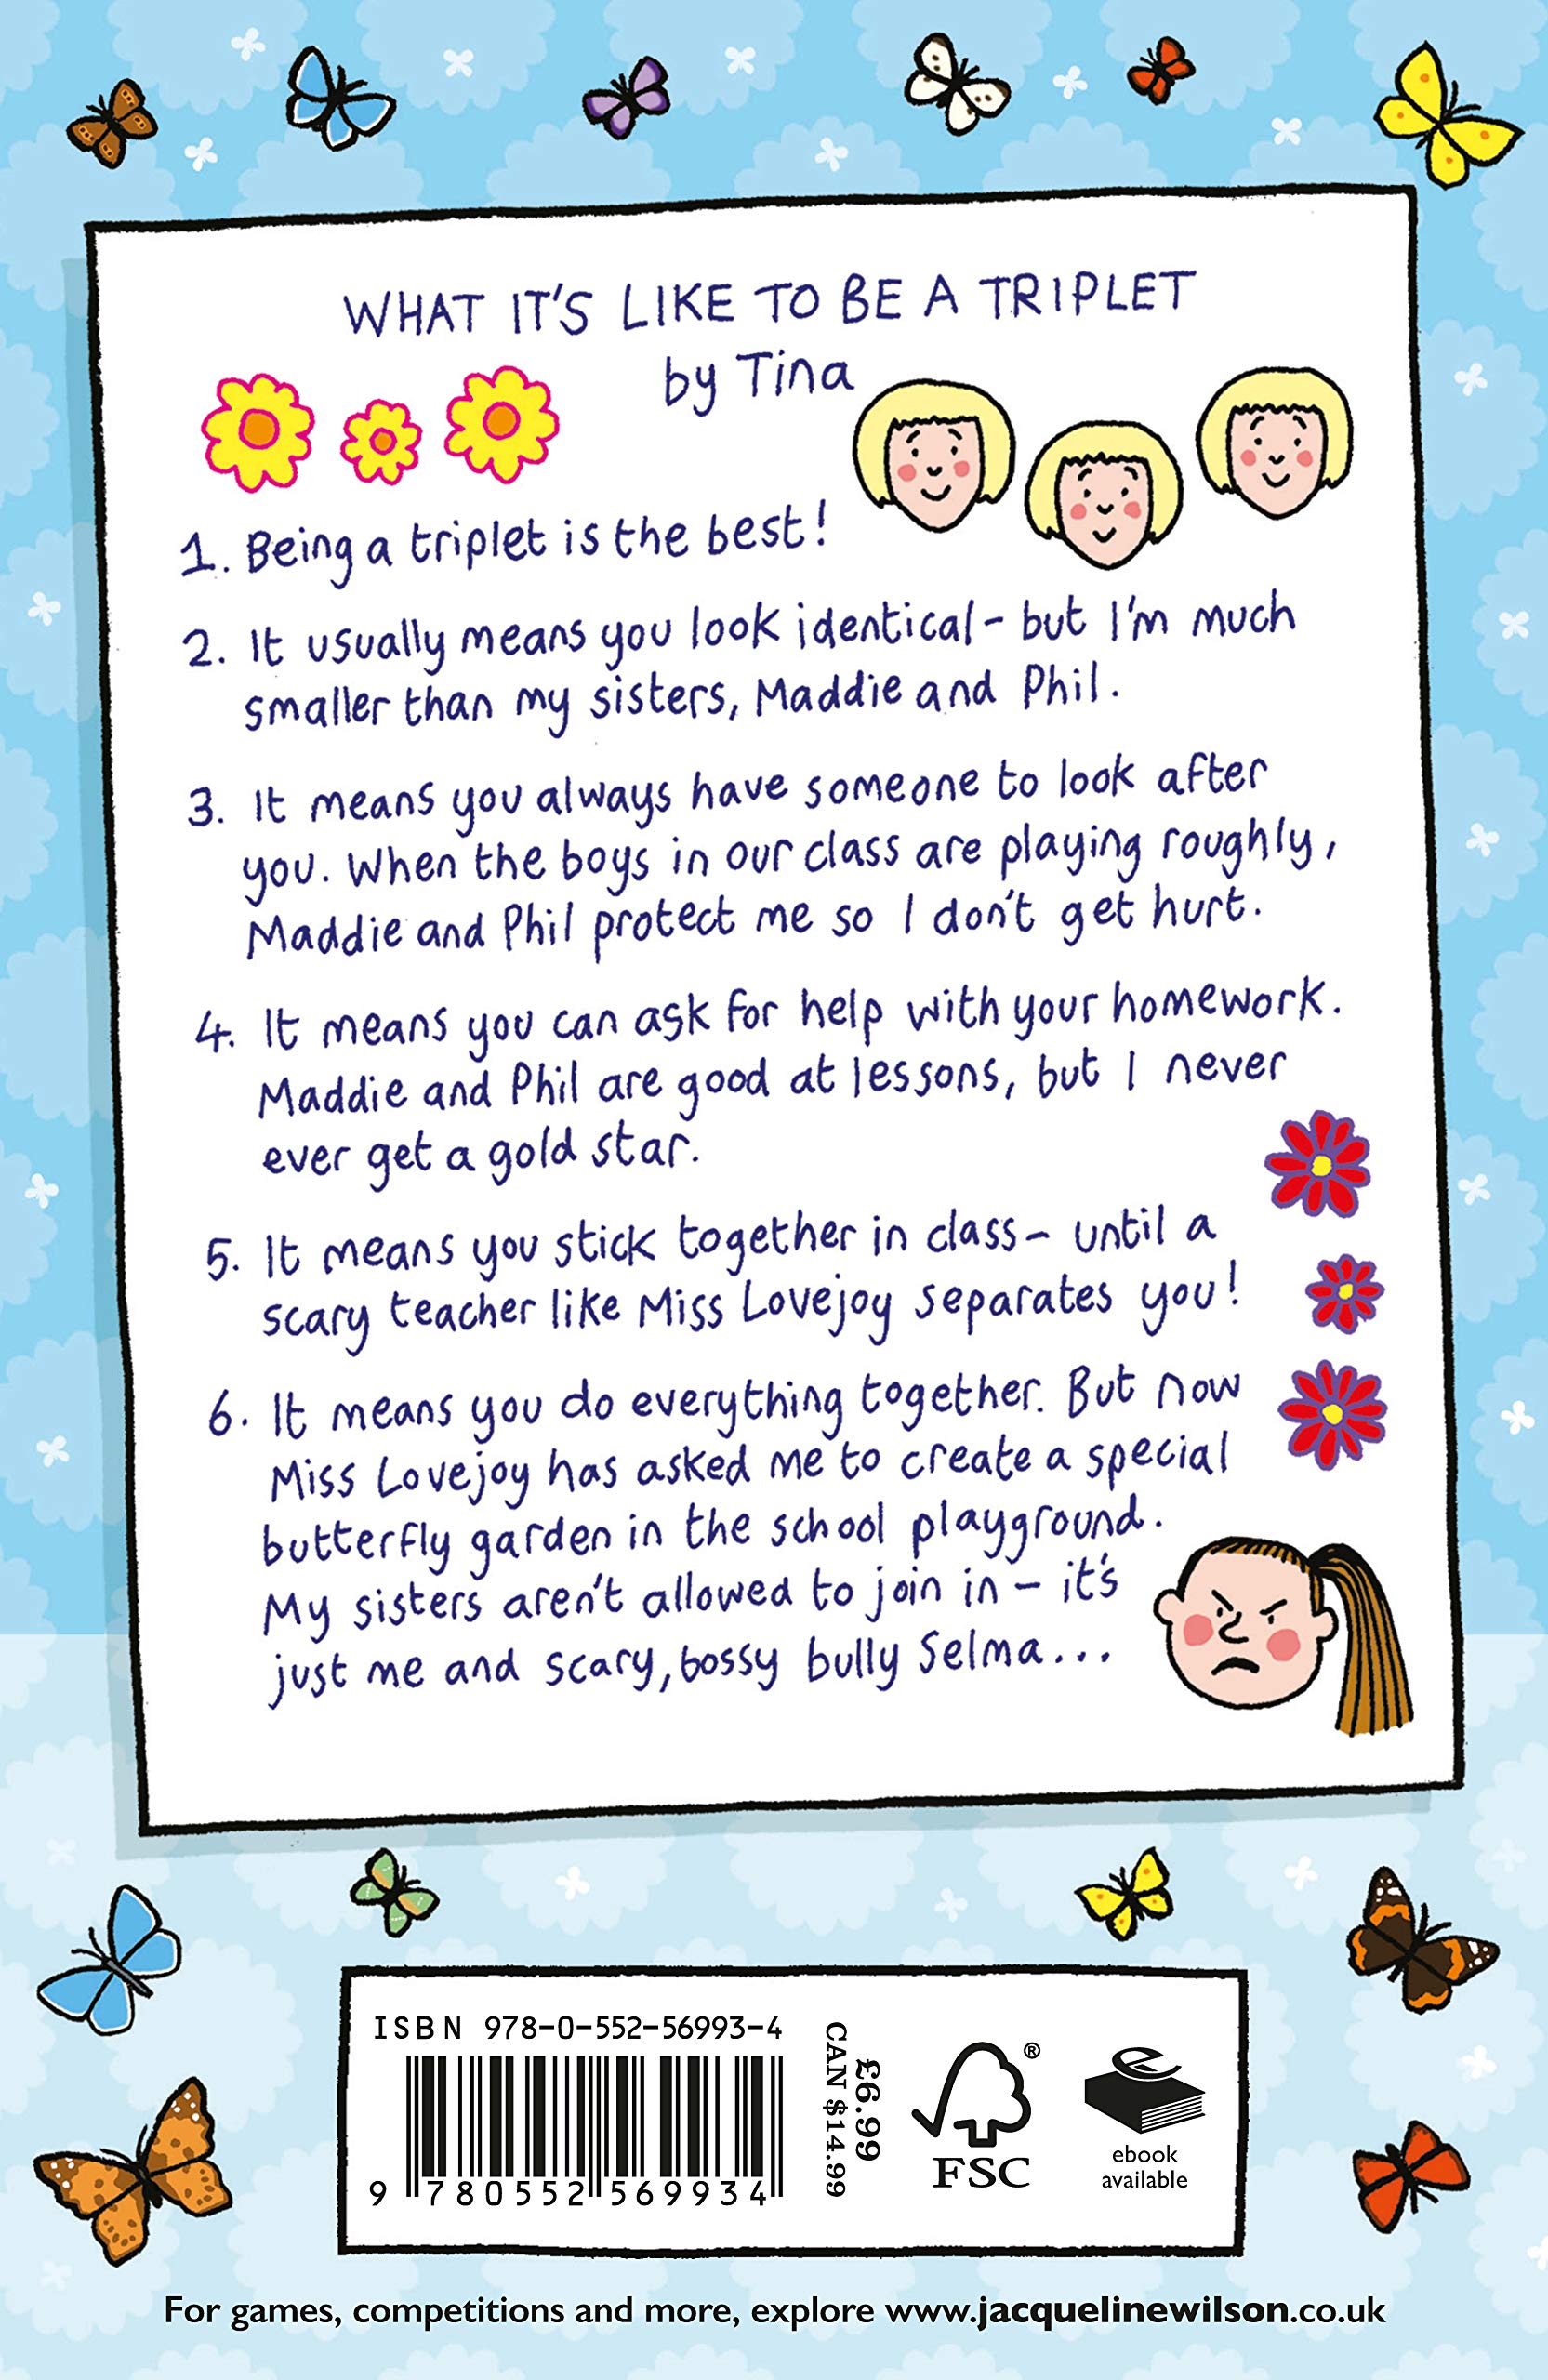 WHAT IT'S LIKE TO BE A TRIPLET
by Tina
1. Being a triplet is the best!
2. It usually means you look identical - but I'm much
smaller than my sisters, Maddie and Phil.
3. It means you always have someone to look after
you. When the boys in our class are playing roughly,
Maddie and Phil protect me so I don't get hurt.
4. It means you can ask for help with your homework.
Maddie and Phil are good at lessons, but I never
ever get a gold star.
5. It means you stick together in class - until a
scary teacher like Miss Lovejoy separates you!
6. It means you do everything together. But now
Miss Lovejoy has asked me to create a special
butterfly garden in the school playground.
My sisters aren't allowed to join in - it's
just me and scary, bossy bully Selma...
ISBN 978-0-552-56993-4
9 780552 569934
£6.99
CAN $14.99
®
FSC
ebook
available
For games, competitions and more, explore www.jacquelinewilson.co.uk